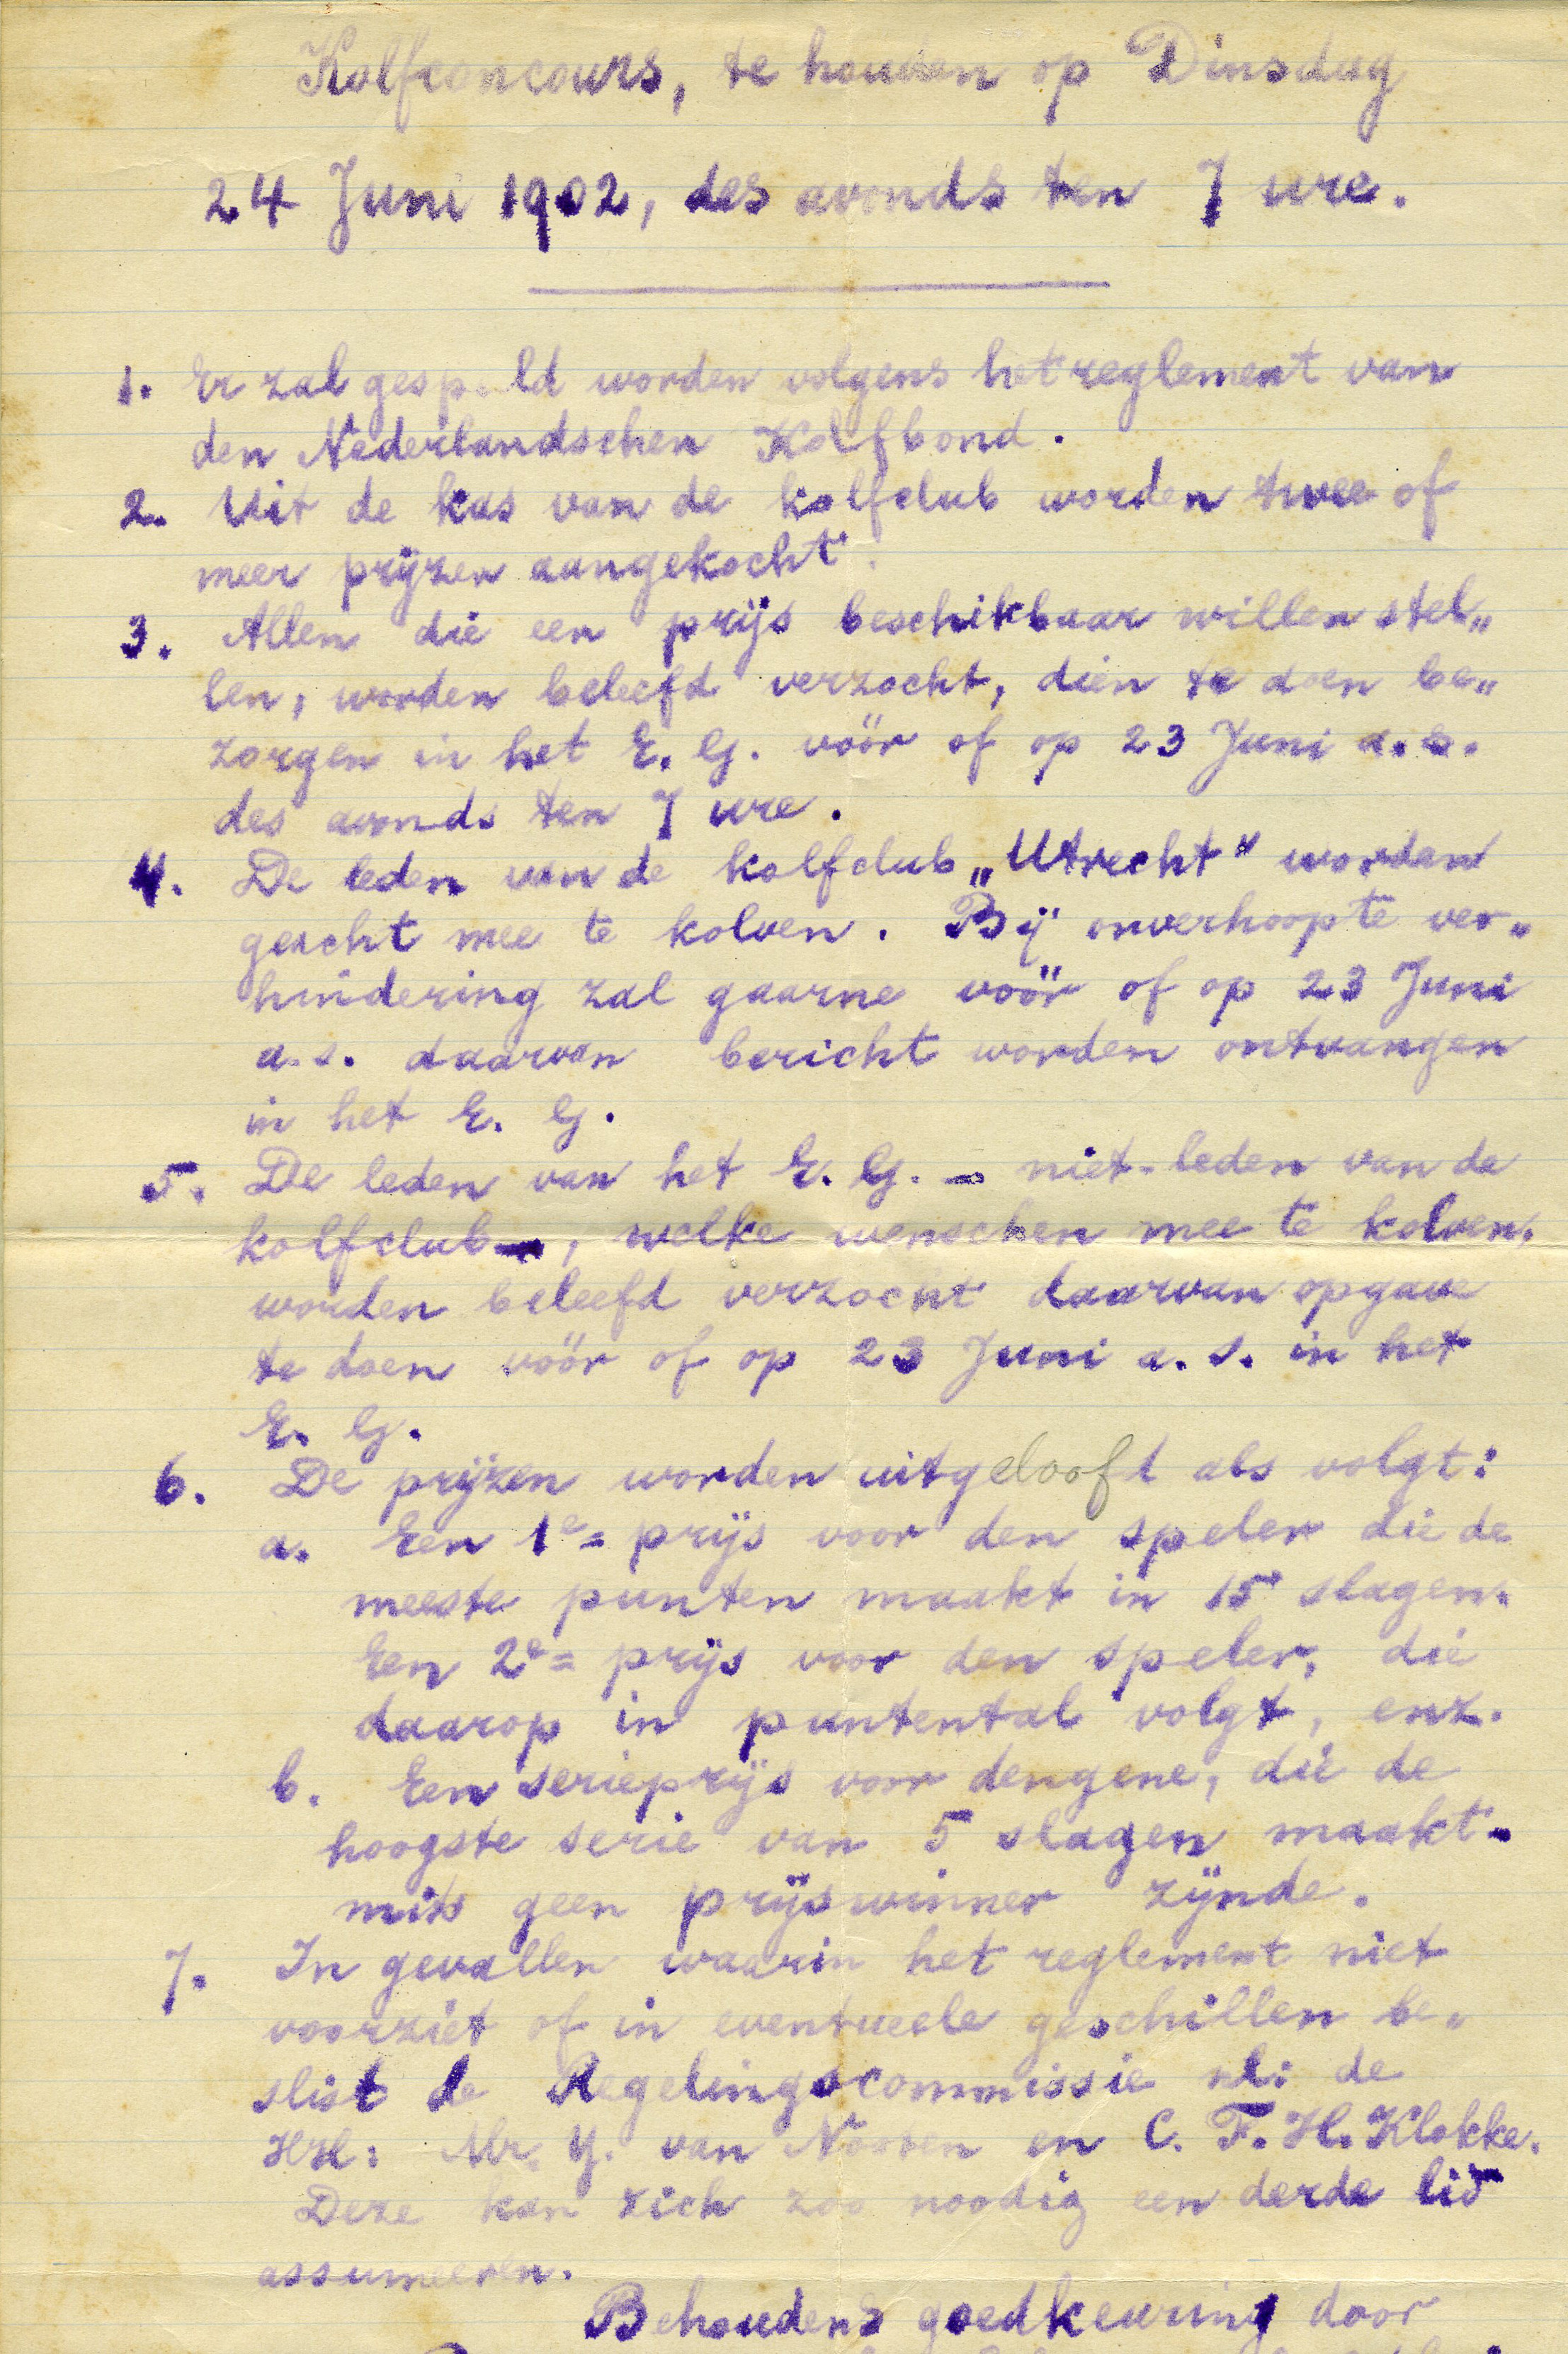 Kolfconcours, te houden op Dinsdag
24 Juni 1902, des avonds ten 7 ure.
1. Er zal gespeeld worden volgens het reglement van
den Nederlandschen Kolfbond.
2. Uit de kas van de kolfclub worden twee of
meer prijzen aangekocht.
3. Allen die een prijs beschikbaar willen stel„
len, worden beleefd verzocht, dien te doen be„
zorgen in het E. G. vóór of op 23 Juni a.s.
des avonds ten 7 ure.
4. De leden van de kolfclub „Utrecht" worden
geacht mee te kolven. Bij onverhoopte ver„
hindering zal gaarne vóór of op 23 Juni
a.s. daarvan bericht worden ontvangen
in het E. G.
5. De leden van het E. G. - niet-leden van de
kolfclub -, welke wenschen mee te kolven,
worden beleefd verzocht daarvan opgave
te doen vóór of op 23 Juni a.s. in het
E. G.
6. De prijzen worden uitgeloofd als volgt:
a. Een 1e= prijs voor den speler die de
meeste punten maakt in 15 slagen.
Een 2e= prijs voor den speler, die
daarop in puntental volgt, enz.
b. Een serieprijs voor dengene, die de
hoogste serie van 5 slagen maakt -
mits geen prijswinner zijnde.
7. In gevallen waarin het reglement niet
voorziet of in eventueele geschillen be„
slist de Regelingscommissie nl: de
HH: Mr. Y. van Noorten en C. F. H. Klokke.
Deze kan zich zoo noodig een derde lid
assumeeren.
Behoudens goedkeuring door